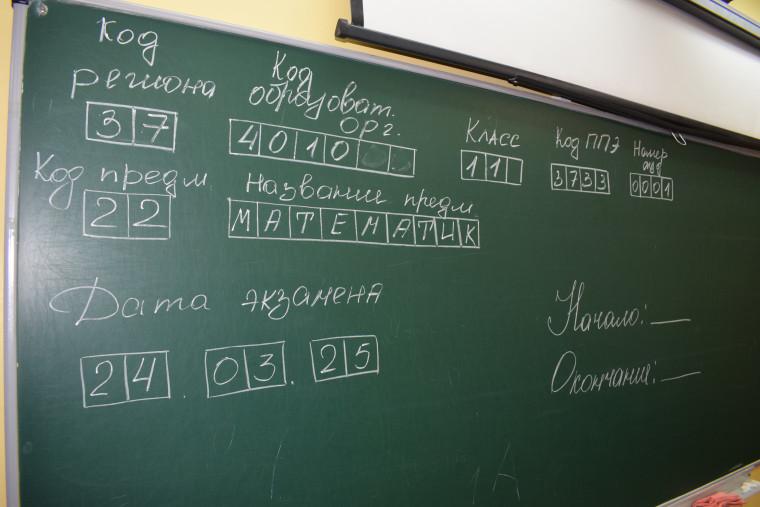 Код
региона
37
Код
образоват.
орг.
4010
Класс
11
Код ППЭ
3733
Номер
ауд
0001
Код предм
22
Название предм.
МАТЕМАТИК
Дата экзамена
24.03.25
Начало: __
Окончание: __
А